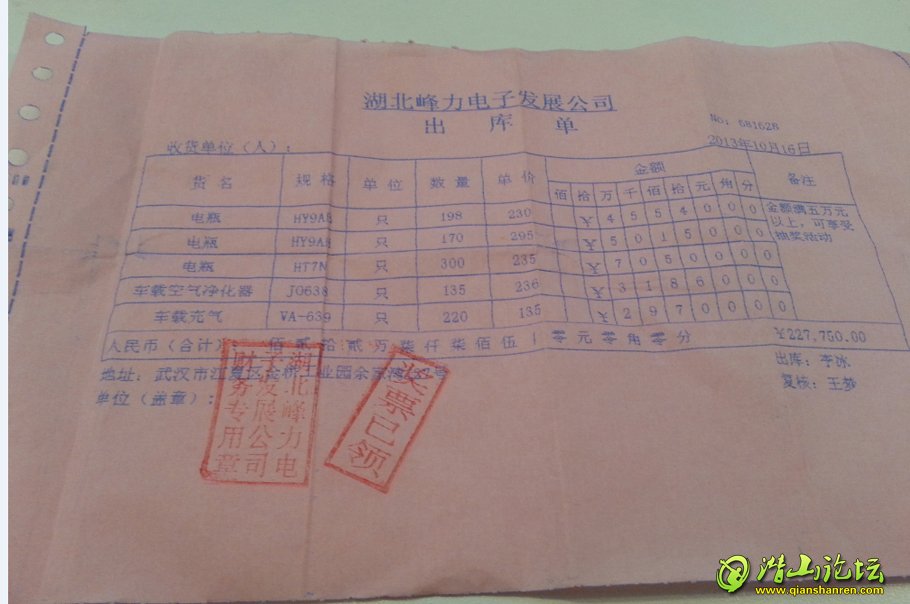 湖北峰力电子发展公司
出 库 单
No: 681628
2013年10月16日
收货单位（人）:
货名 规格 单位 数量 单价 金额 备注
佰 拾 万 千 佰 拾 元 角 分
电瓶 只 198 230 ¥ 4 5 5 4 0 0 0 金额满五万元以上，可享受抽奖活动
电瓶 只 170 295 ¥ 5 0 1 5 0 0 0
电瓶 HT7N 只 300 235 ¥ 7 0 5 0 0 0 0
车载空气净化器 JO638 只 135 236 ¥ 3 1 8 6 0 0 0
车载充气 VA-639 只 220 135 ¥ 2 9 7 0 0 0 0
人民币（合计）: 佰贰拾贰万柒仟柒佰伍 零元零角零分 ¥227,750.00
地址: 武汉市江夏区 工业园余家湾 号
出库: 李冰
单位（盖章）:
复核: 王梦
湖北峰力电子发展公司财务专用章
奖票已领
潜山论坛
www.qianshanren.com